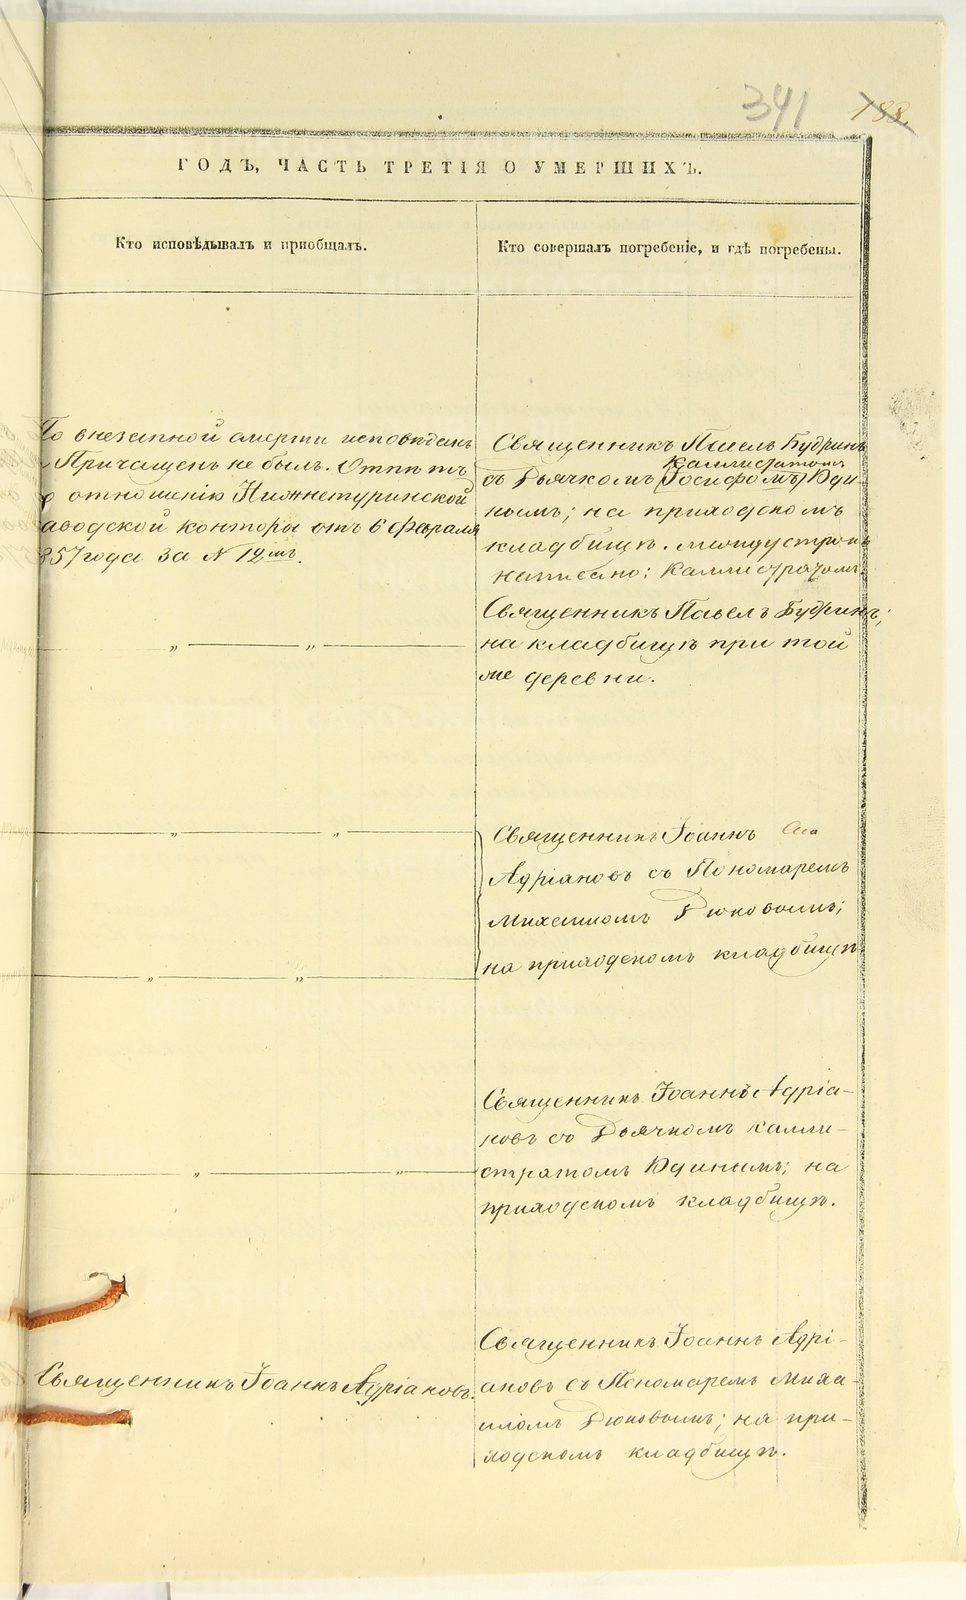 341 188.
ГОДЪ, ЧАСТЬ ТРЕТІЯ О УМЕРШИХЪ.
Кто исповѣдывалъ и приобщалъ.
Кто совершалъ погребеніе, и гдѣ погребены.
По внезапной смерти исповѣданъ
и Причащенъ не былъ. Отпѣтъ
отношенію Нижнетуринской
аводской конторы отъ 6 Февраля
857 года за № 12мъ.
Священникъ Павелъ Будринъ
Каллистратомъ
съ Дьячкомъ (Іосифомъ) Юди-
нымъ; на приходскомъ
кладбищѣ. Междустрокъ
написано: Каллистратомъ.
Священникъ Павелъ Будринъ;
на кладбищѣ при той
же деревни.
Священникъ Іоаннъ
Адріановъ съ Пономаремъ
Михаиломъ Дюковымъ;
на приходскомъ кладбищѣ.
Священникъ Іоаннъ Адріа-
новъ со Дьячкомъ Калли-
стратомъ Юдинымъ; на
приходскомъ кладбищѣ.
Священникъ Іоаннъ Адріановъ.
Священникъ Іоаннъ Адрі-
ановъ съ Пономаремъ Миха-
иломъ Дюковымъ; на при-
ходскомъ кладбищѣ.
METRIKI.GASO-URAL.RU